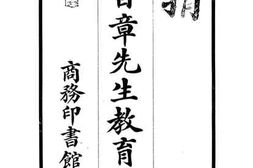 章先生教育
商務印書館